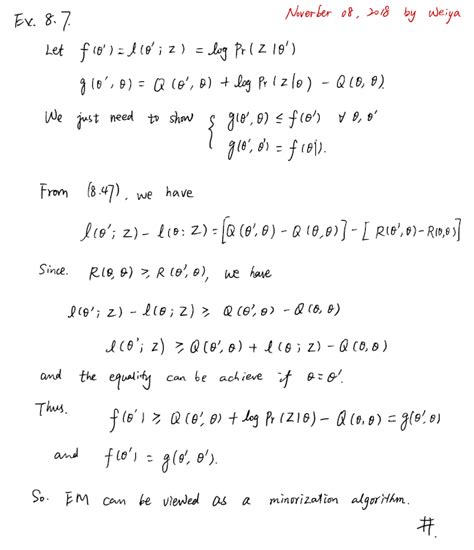 Ex. 8.7.
Noverber 08, 2018 by Weiya
Let f(θ') = l(θ'; Z) = log Pr(Z|θ')
g(θ', θ) = Q(θ', θ) + log Pr(Z|θ) - Q(θ, θ).
We just need to show { g(θ', θ) ≤ f(θ') ∀ θ, θ'
g(θ', θ') = f(θ').
From (8.47), we have
l(θ'; Z) - l(θ; Z) = [Q(θ', θ) - Q(θ, θ)] - [R(θ', θ) - R(θ, θ)]
Since. R(θ, θ) ≥ R(θ', θ), we have
l(θ'; Z) - l(θ; Z) ≥ Q(θ', θ) - Q(θ, θ)
l(θ'; Z) ≥ Q(θ', θ) + l(θ; Z) - Q(θ, θ)
and the equality can be achieve if θ = θ'.
Thus. f(θ') ≥ Q(θ', θ) + log Pr(Z|θ) - Q(θ, θ) = g(θ', θ)
and f(θ') = g(θ', θ').
So. EM can be viewed as a minorization algorithm.
#.